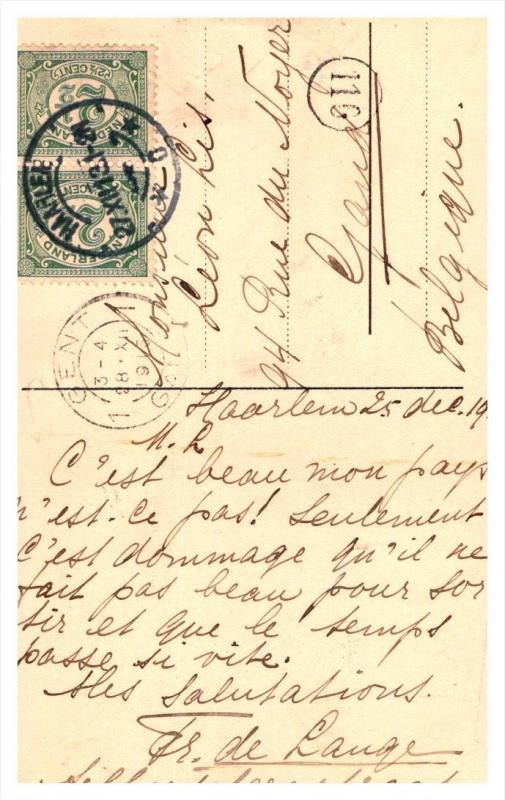 2½ CENT
NEDERLAND
2½
2½ CENT
NEDERLAND
2½
HAARLEM
GENT
3-4
28 XII
19
GAND
116
Monsieur
Léon Lis.
94 Rue du Noyer
Gand
Belgique.
Haarlem 25 dec. 19
M. L
C'est beau mon pays
n'est-ce pas! Seulement
C'est dommage qu'il ne
fait pas beau pour sor
tir et que le temps
passe si vite.
Mes salutations.
Fr. de Lange